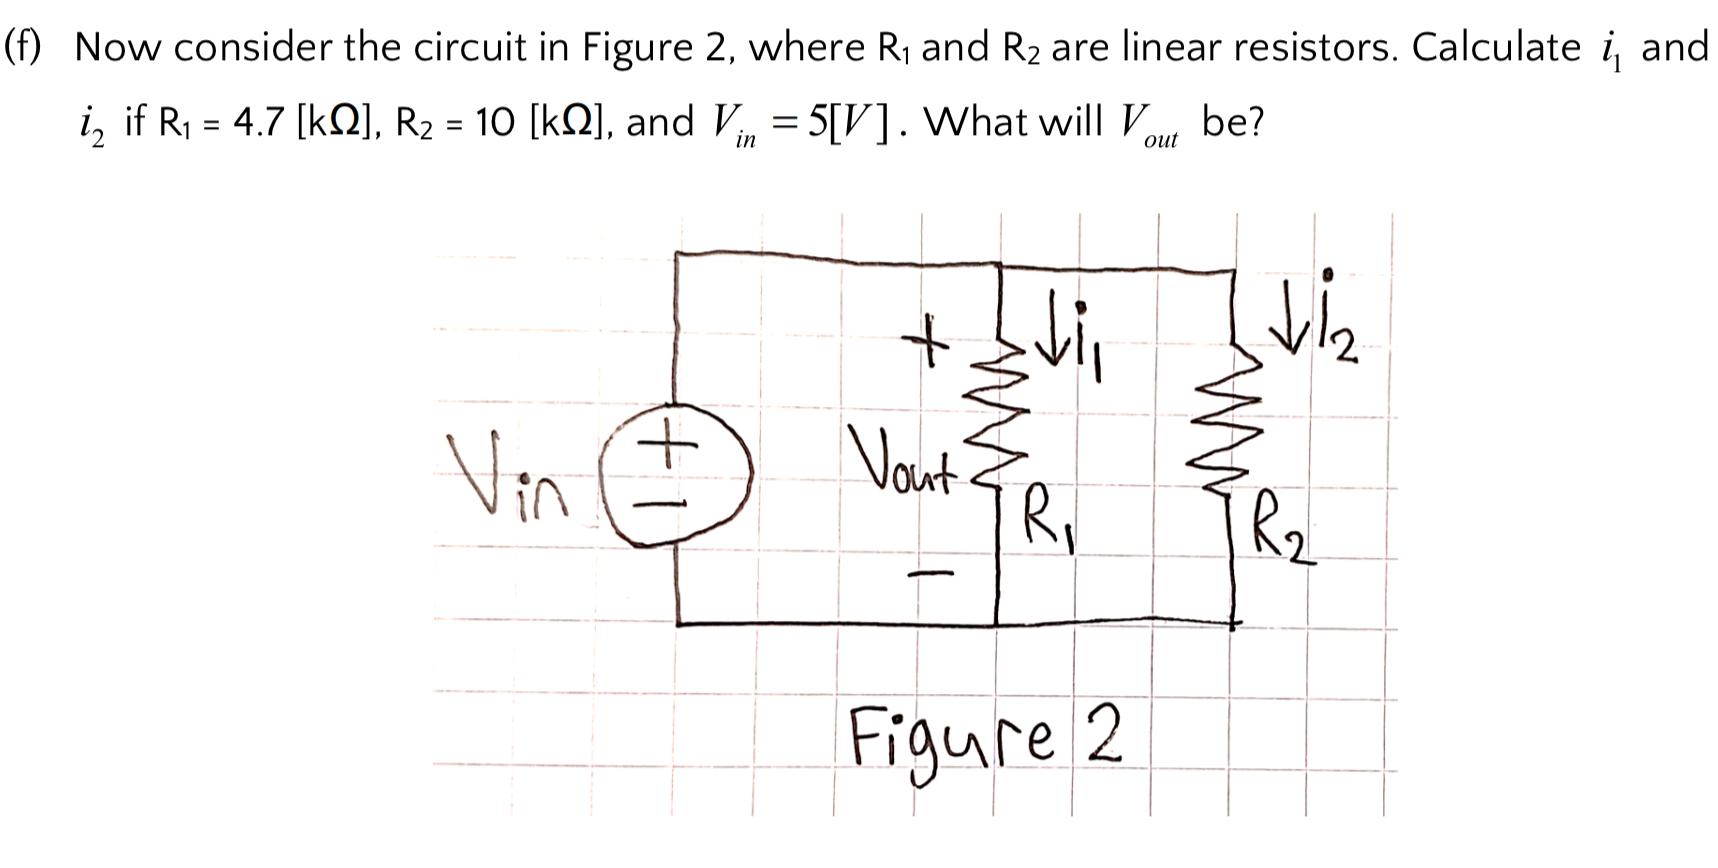 (f) Now consider the circuit in Figure 2, where R₁ and R₂ are linear resistors. Calculate i₁ and
i₂ if R₁ = 4.7 [kΩ], R₂ = 10 [kΩ], and V_in = 5[V]. What will V_out be?
+ ↓i₁ ↓i₂
+
Vin Vout
−
R₁ R₂
−
Figure 2